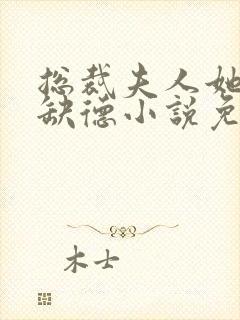 总裁夫人她
缺德小説免
木士